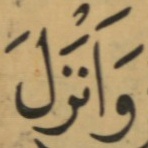 وَأَنْزَلَ